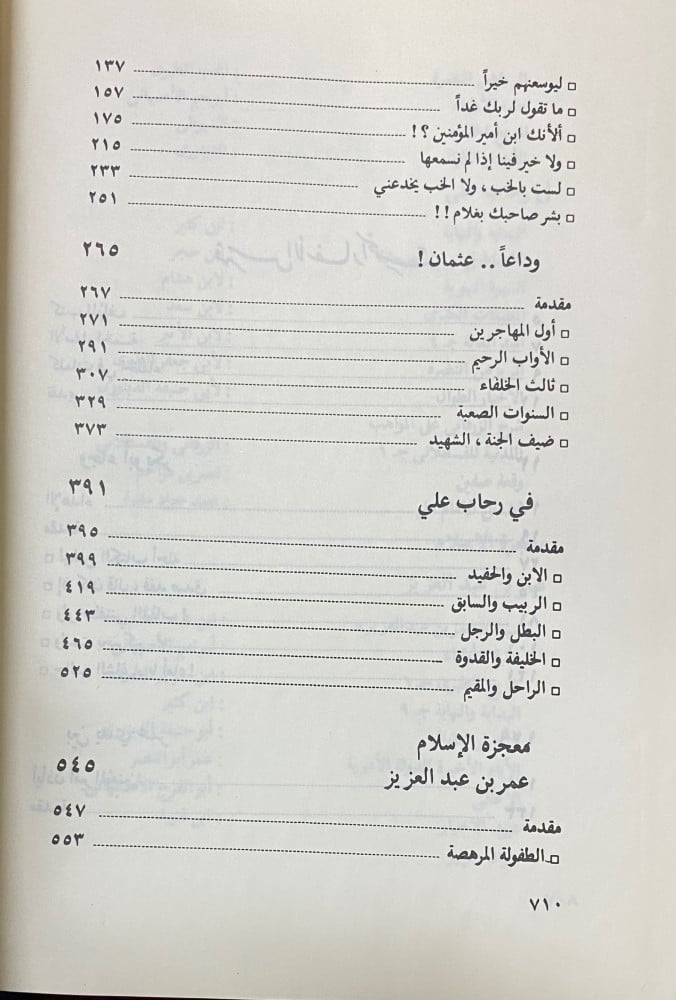 □ ليوسعنهم خيراً ........ ١٣٧
□ ما تقول لربك غداً ........ ١٥٧
□ ألأنك ابن أمير المؤمنين ؟! ........ ١٧٥
□ ولا خير فينا إذا لم نسمعها ........ ٢١٥
□ لست بالخب ، ولا الخب يخدعني ........ ٢٣٣
□ بشر صاحبك بغلام !! ........ ٢٥١
وداعاً .. عثمان ! ٢٦٥
مقدمة ........ ٢٦٧
□ أول المهاجرين ........ ٢٧١
□ الأواب الرحيم ........ ٢٩١
□ ثالث الخلفاء ........ ٣٠٧
□ السنوات الصعبة ........ ٣٢٩
□ ضيف الجنة ، الشهيد ........ ٣٧٣
في رحاب علي ٣٩١
مقدمة ........ ٣٩٥
□ الابن والحفيد ........ ٣٩٩
□ الربيب والسابق ........ ٤١٩
□ البطل والرجل ........ ٤٤٣
□ الخليفة والقدوة ........ ٤٦٥
□ الراحل والمقيم ........ ٥٢٥
معجزة الإسلام
عمر بن عبد العزيز ٥٤٥
مقدمة ........ ٥٤٧
□ الطفولة المرهصة ........ ٥٥٣
٧١٠